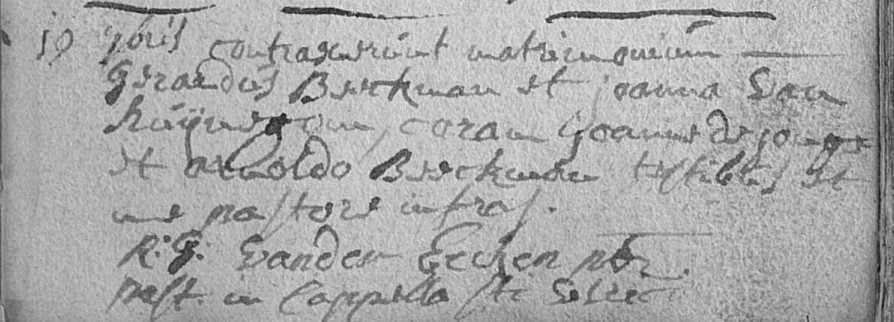 19 9bris contraxerunt matrimonium
Gerardus Beeckman et Joanna Van
coram Joanne de Jonge
et Arnoldo Beeckman testibus et
me pastore infras.
R: G: Vander Eecken pbr.
past. in Cappella Sti